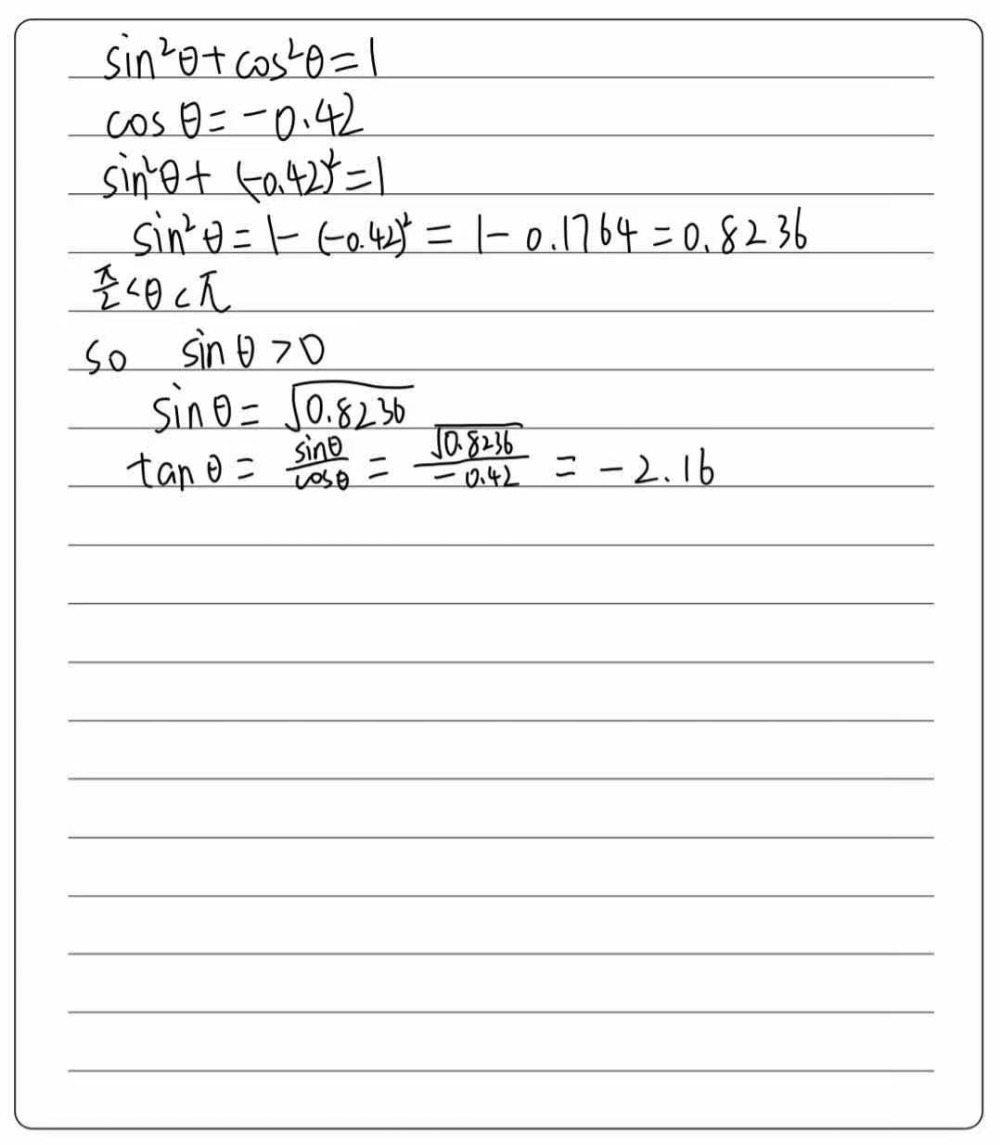 sin²θ+cos²θ=1
cos θ=-0.42
sin²θ+ (-0.42)²=1
sin²θ=1-(-0.42)²=1-0.1764=0.8236
π/2<θ<π
so sinθ>0
sinθ=√0.8236
tanθ=sinθ/cosθ=√0.8236/-0.42=-2.16